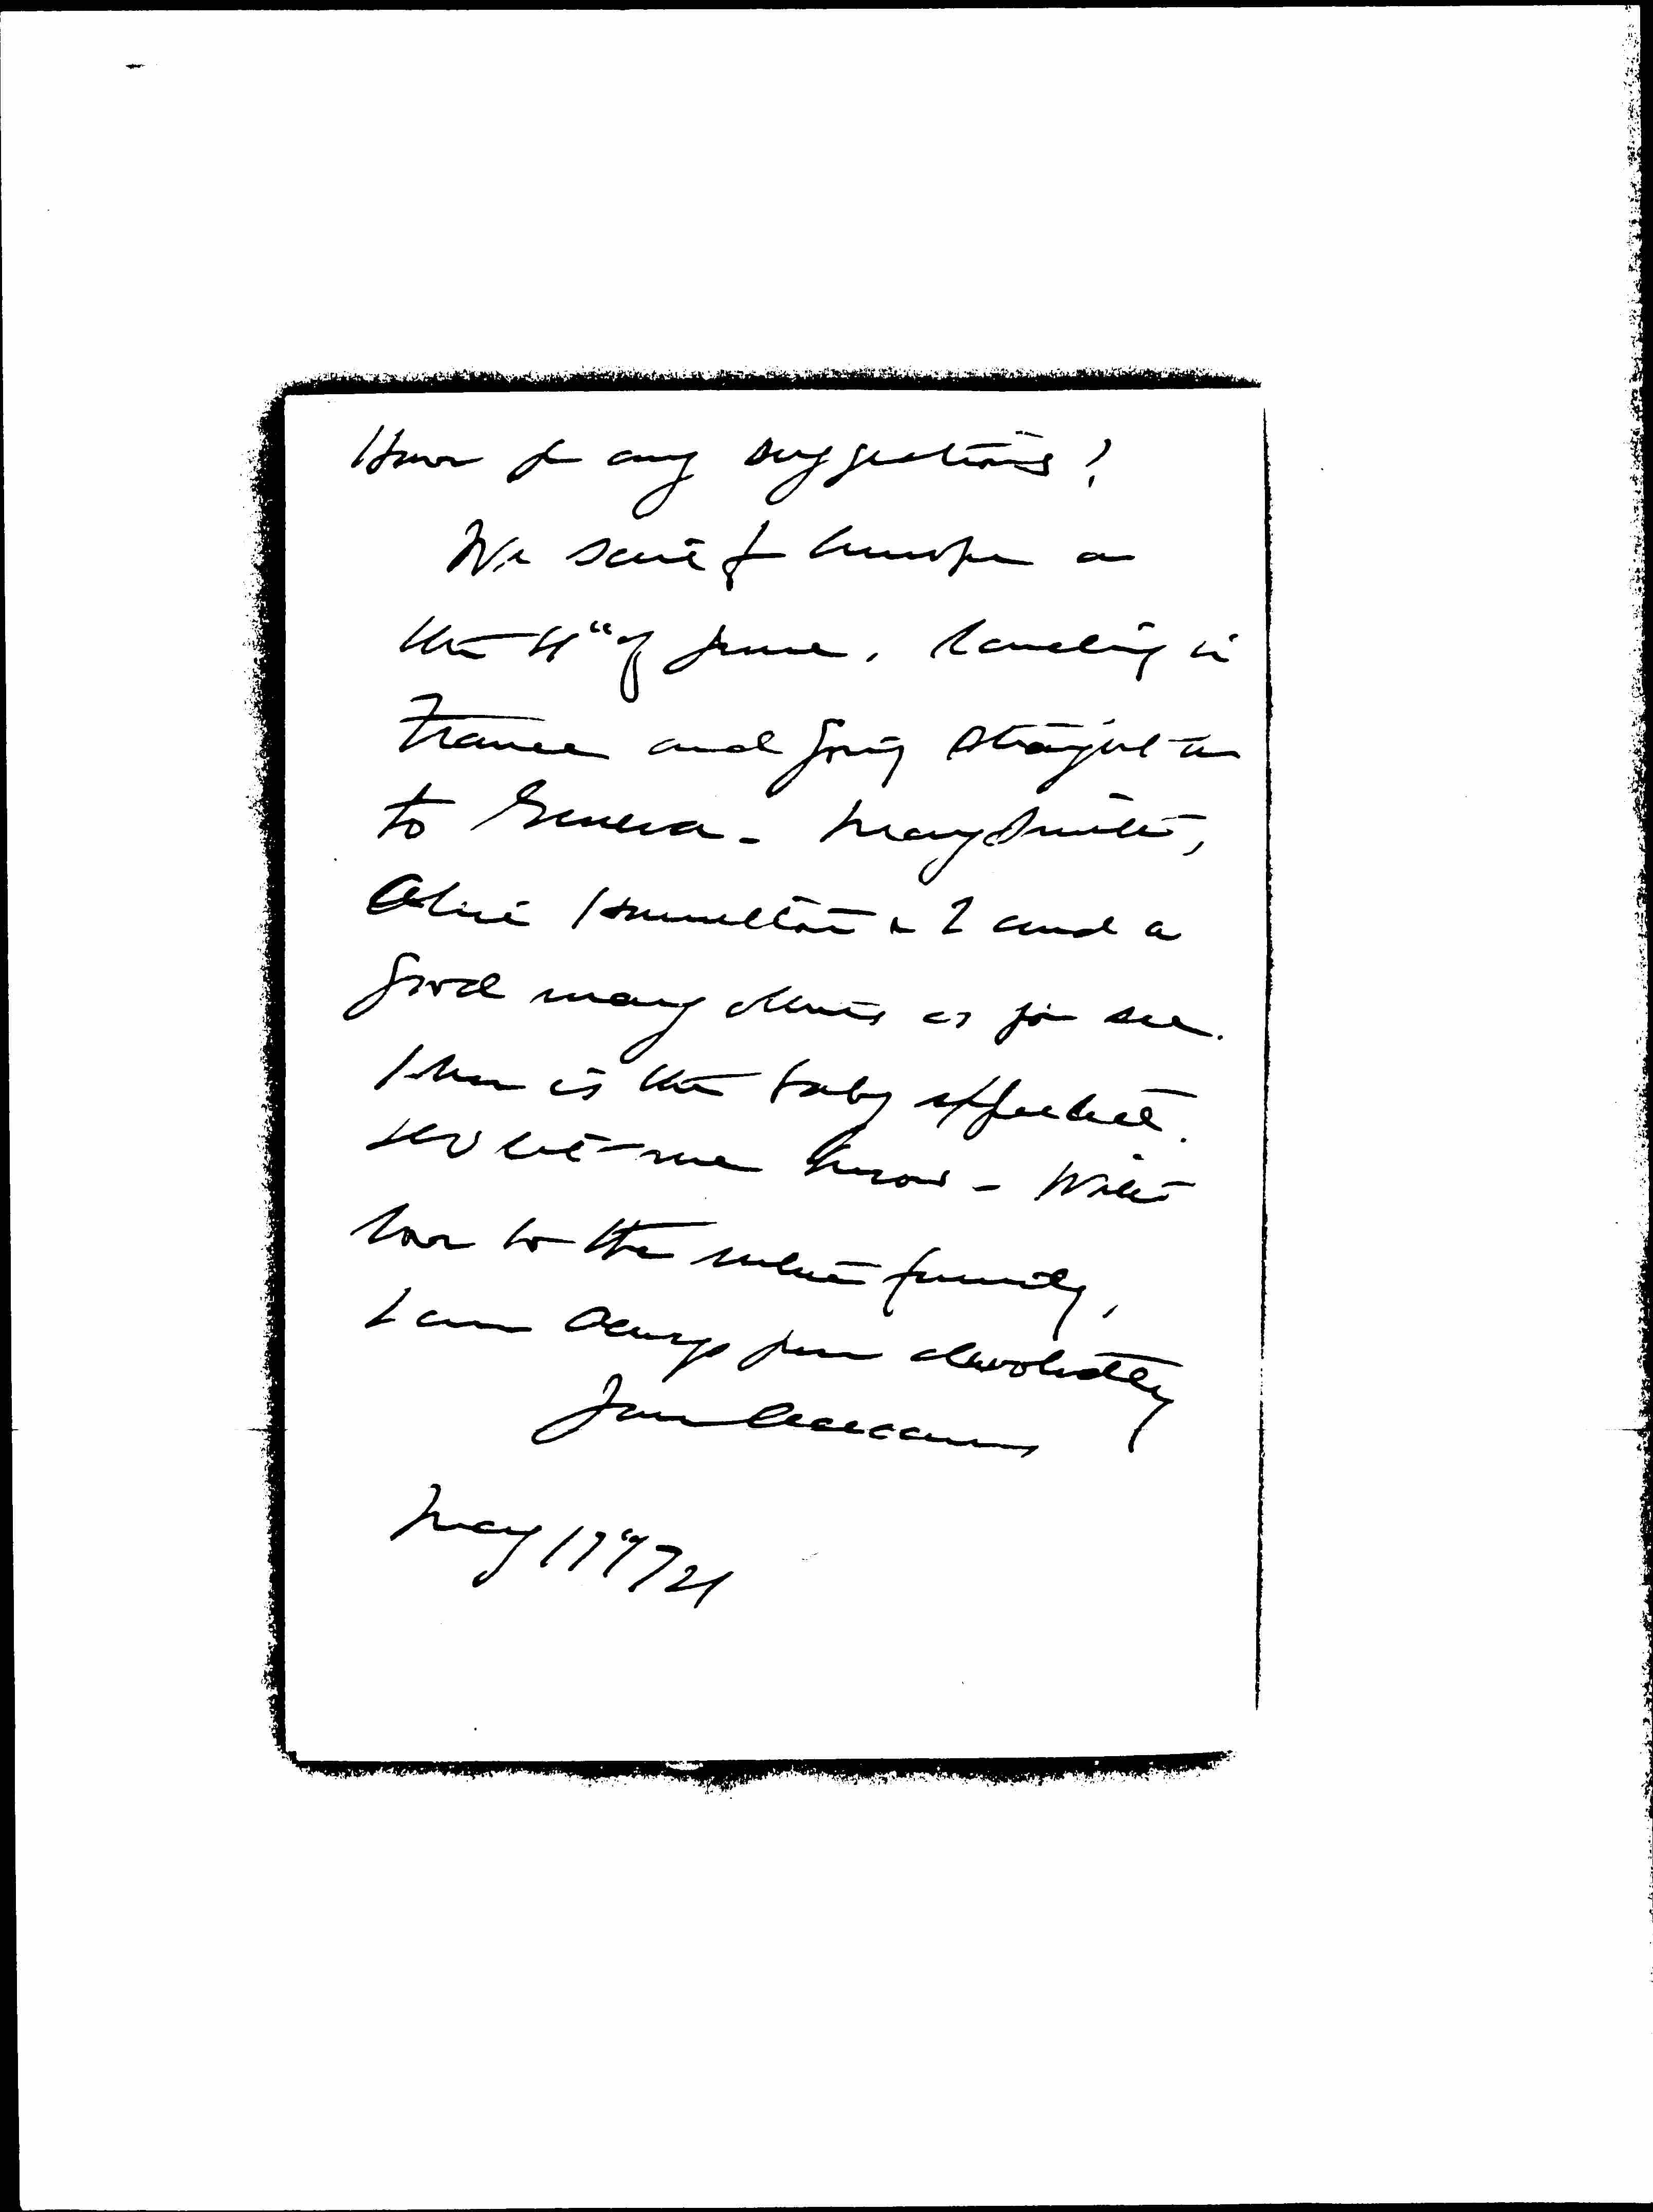 Have you any suggestions?
We sail for Europe on
the 4" of June, landing in
France and going straight on
to Geneva - Mary Smith,
Alice Hamilton & I and a
good many others as you see.
When is the baby expected.
do let me know - With
love to the entire family,
I am always yours devotedly
Jane Addams
May 17" '21